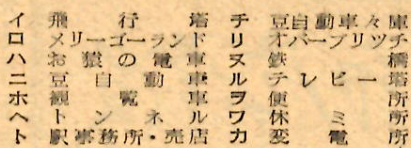 イ 飛行塔
ロ メリーゴーランド
ハ お猿の電車
ニ 豆自動車
ホ 観覧車
ヘ トンネル
ト 駅事務所・売店
チ 豆自動車々庫
リ オバーブリッヂ
ヌ 鉄橋
ル テレビー塔
ヲ 便所
ワ 休ミ所
カ 変電所